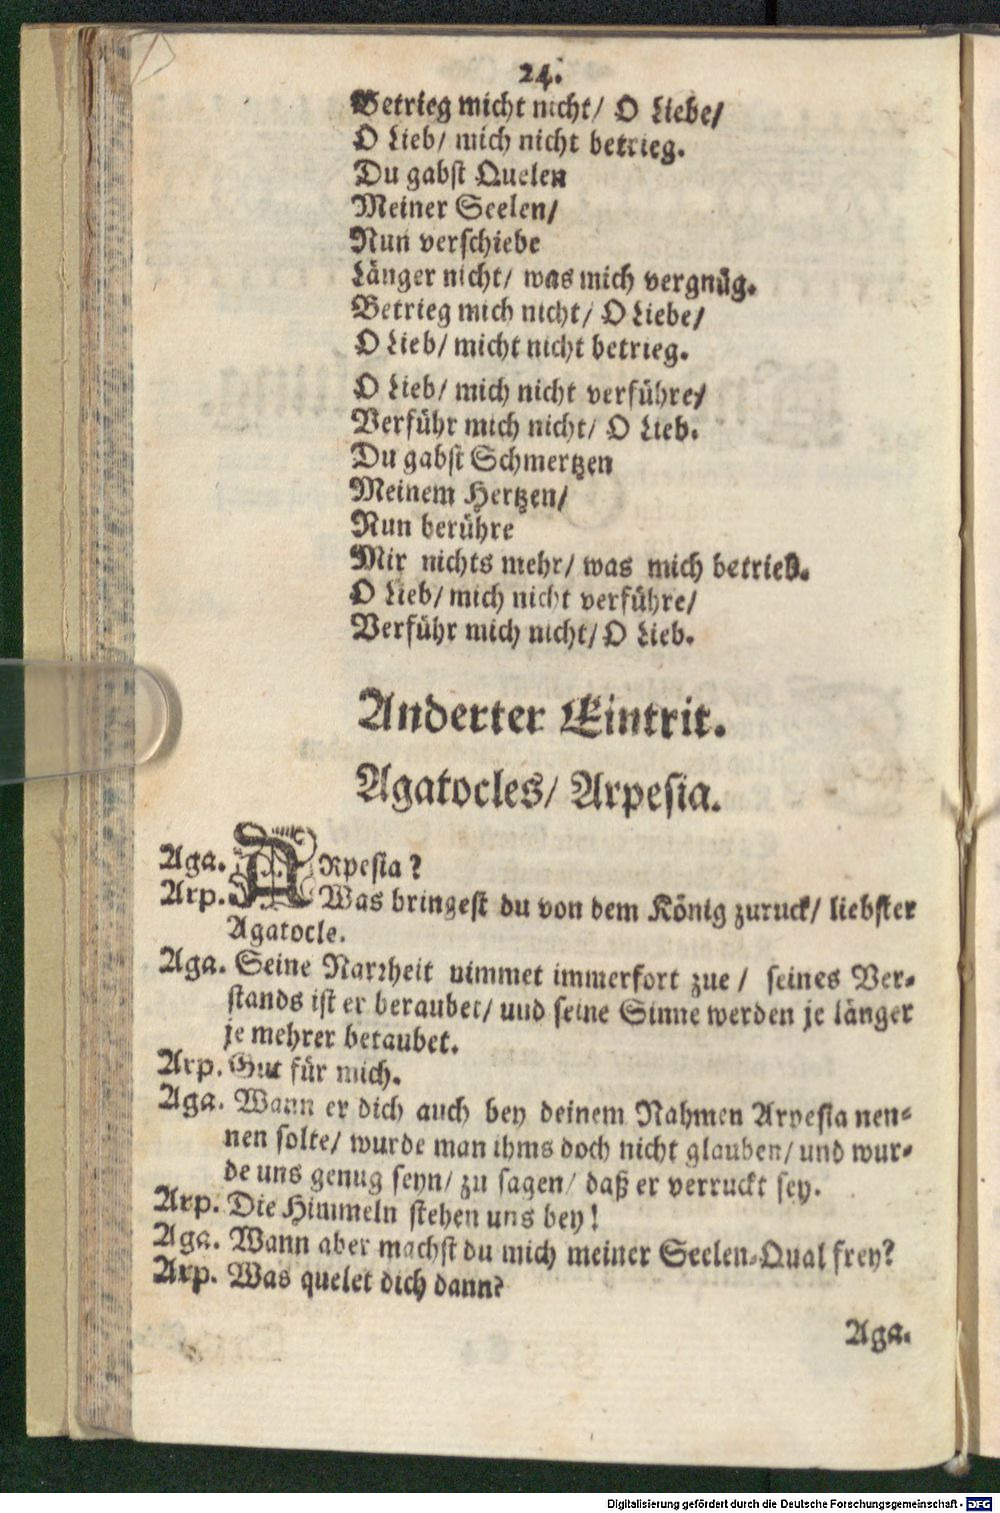 24.
Betrieg micht nicht/ O Liebe/
O Lieb/ mich nicht betrieg.
Du gabst Quelen
Meiner Seelen/
Nun verschiebe
Länger nicht/ was mich vergnüg.
Betrieg mich nicht/ O Liebe/
O Lieb/ micht nicht betrieg.
O Lieb/ mich nicht verführe/
Verführ mich nicht/ O Lieb.
Du gabst Schmertzen
Meinem Hertzen/
Nun berühre
Mir nichts mehr/ was mich betrieb.
O Lieb/ mich nicht verführe/
Verführ mich nicht/ O Lieb.
Anderter Eintrit.
Agatocles/ Arpesia.
Aga. ARpesia?
Arp. Was bringest du von dem König zuruck/ liebster
Agatocle.
Aga. Seine Narrheit nimmet immerfort zue / seines Ver-
stands ist er beraubet/ und seine Sinne werden je länger
je mehrer betaubet.
Arp. Gut für mich.
Aga. Wann er dich auch bey deinem Nahmen Arpesia nen-
nen solte/ wurde man ihms doch nicht glauben/ und wur-
de uns genug seyn/ zu sagen/ daß er verruckt sey.
Arp. Die Himmeln stehen uns bey!
Aga. Wann aber machst du mich meiner Seelen-Qual frey?
Arp. Was quelet dich dann?
Aga.
Digitalisierung gefördert durch die Deutsche Forschungsgemeinschaft - DFG